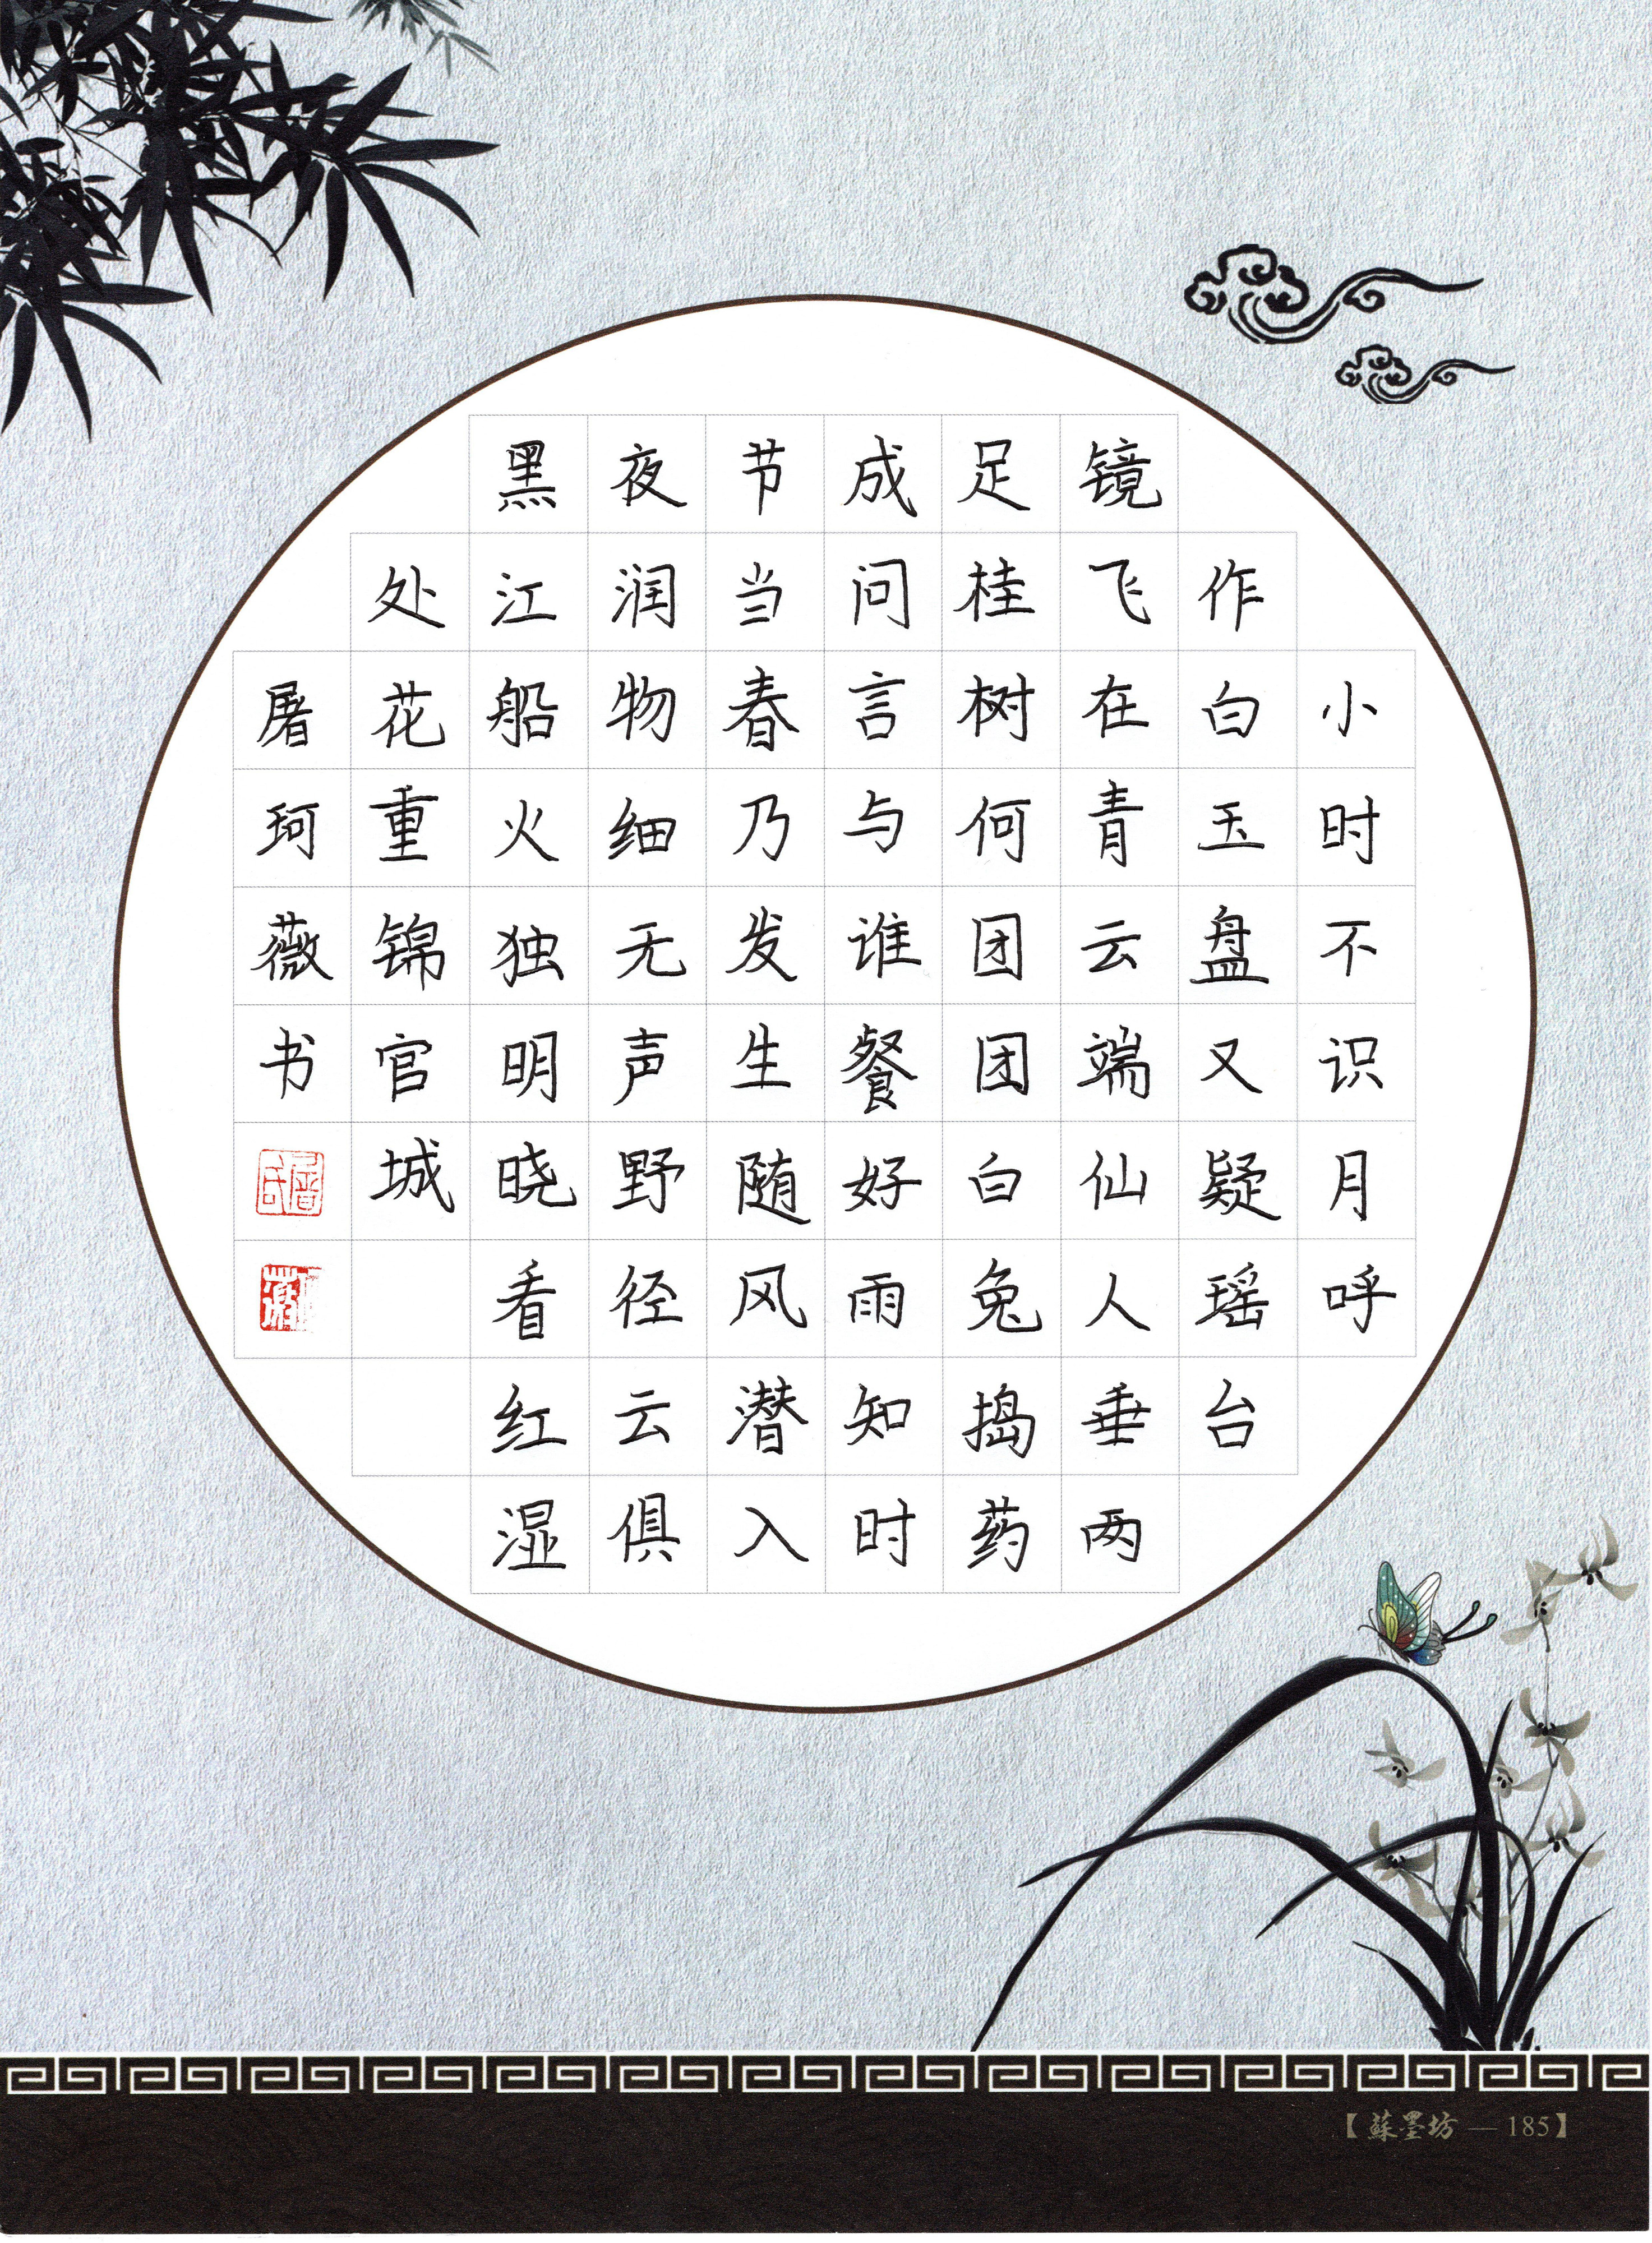 小时不识月呼
作白玉盘又疑瑶台
镜飞在青云端仙人垂两
足桂树何团团白兔捣药
成问言与谁餐好雨知时
节当春乃发生随风潜入
夜润物细无声野径云俱
黑江船火独明晓看红湿
处花重锦官城
屠珂薇书
屠氏
【蘇墨坊 — 185】